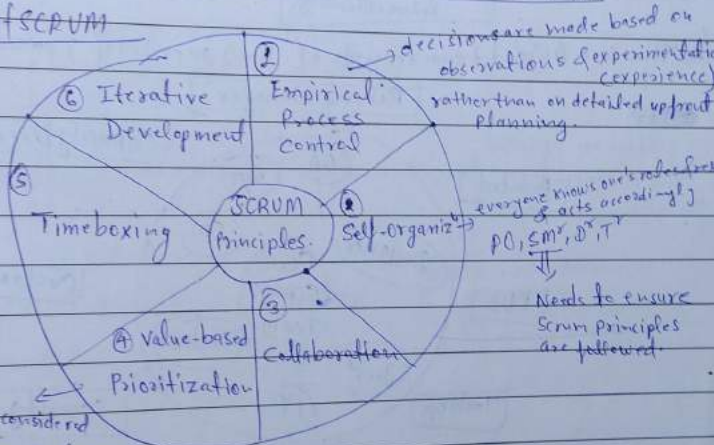 f SCRUM
① Empirical
Process
Control
→ decisions are made based on
observations & experimentatio
(experience)
rather than on detailed upfront
Planning.
⑥ Iterative
Development
⑤
Timeboxing
SCRUM
Principles.
② Self-Organizⁿ →
everyone knows one's roles
& acts accordingly
PO, SMʳ, Dʳ, Tʳ
⇓
Needs to ensure
Scrum principles
are followed.
③
Collaboration
④ Value-based
Prioritization
←
considered